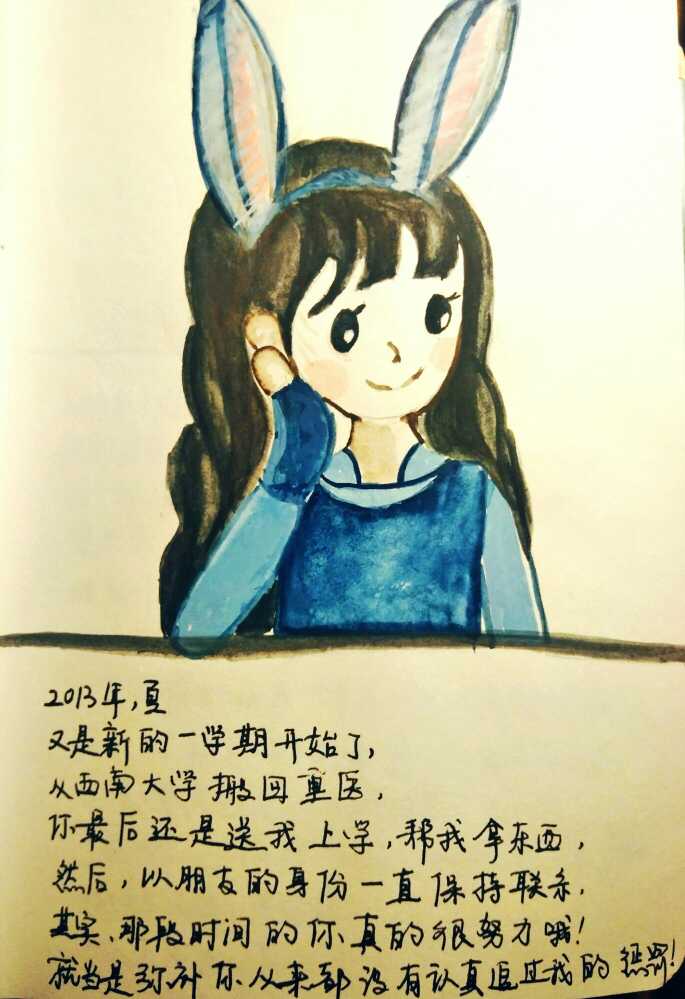 2013年,夏
又是新的一学期开始了,
从西南大学搬回重医,
你最后还是送我上学,帮我拿东西,
然后,以朋友的身份一直保持联系.
其实、那段时间的你真的很努力哦!
就当是弥补你从来都没有认真追过我的惩罚!